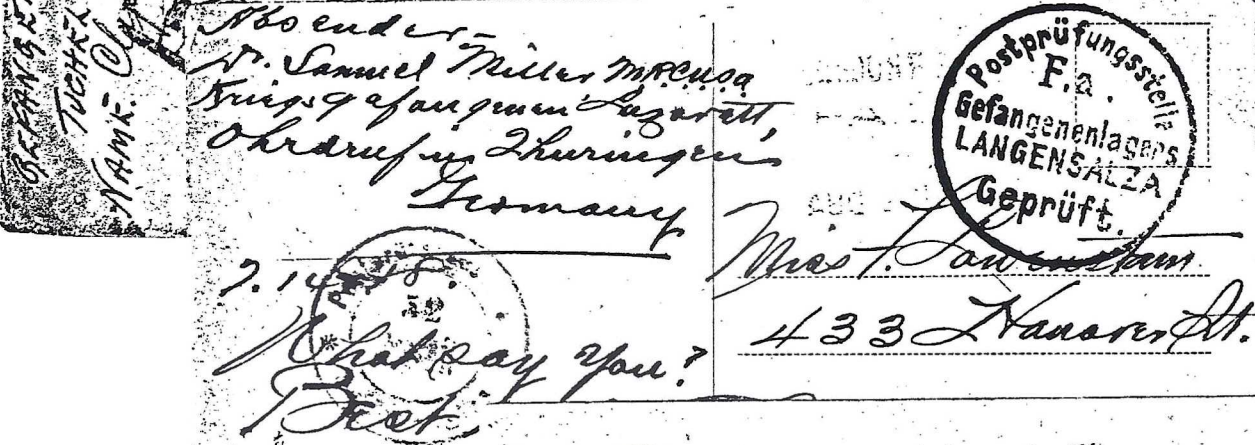 GEFANGE
TUCHEL
NAME.
Absender-
Dr. Samuel Miller M.R.C.U.S.A
Kriegsgefangenen Lazarett,
Ohrdruf in Thuringen
Germany
7.14.18.
What say you?
Best,
Postprüfungsstelle
F.a.
Gefangenenlagers
LANGENSALZA
Geprüft.
Miss
433 Hanover St.